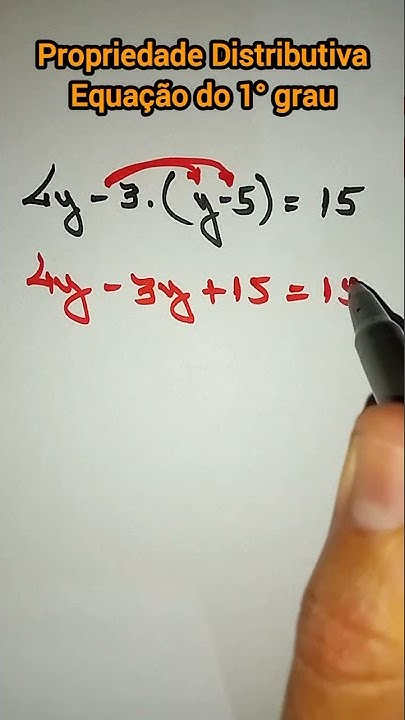 Propriedade Distributiva
Equação do 1° grau
4y - 3. (y-5) = 15
4y - 3y + 15 = 15